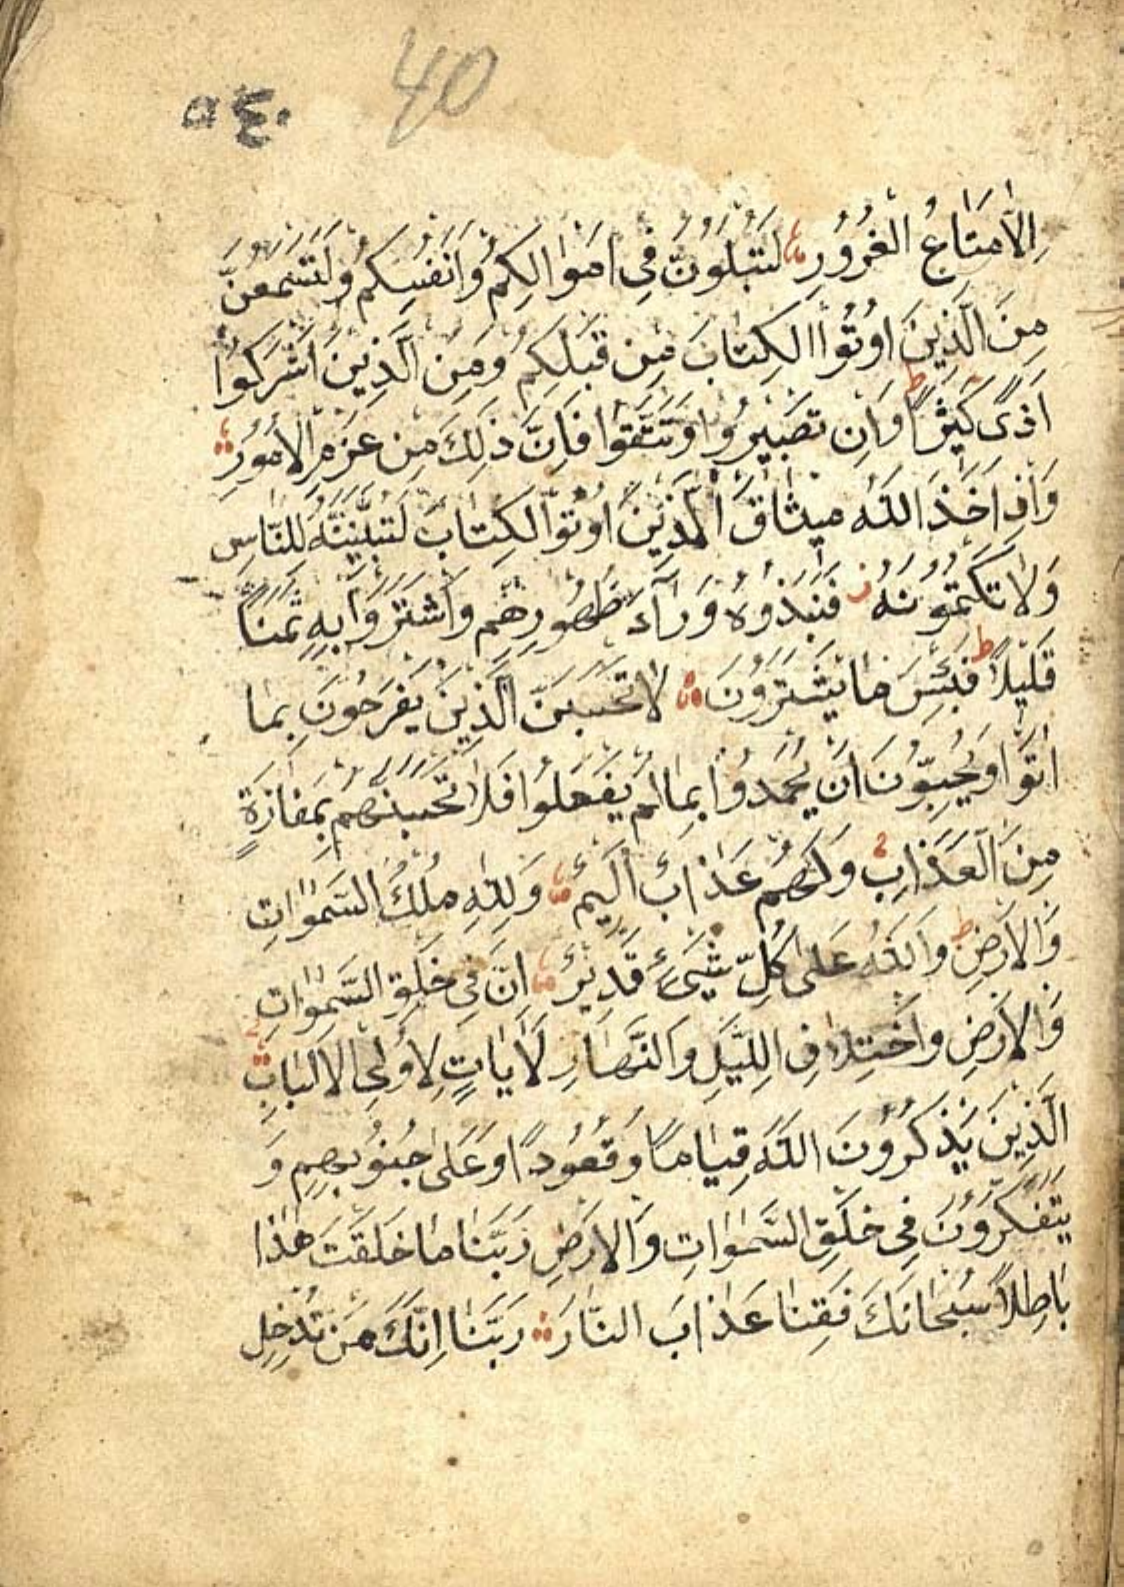 40
٥٤٠
اِلاَّ مَتَاعُ الْغُرُورِ لَتُبْلَوُنَّ فِى اَمْوَالِكُمْ وَاَنْفُسِكُمْ وَلَتَسْمَعُنَّ
مِنَ الَّذِينَ اُوتُوا الْكِتَابَ مِنْ قَبْلِكُمْ وَمِنَ الَّذِينَ اَشْرَكُوا
اَذًى كَثِيرًا ط وَاِنْ تَصْبِرُوا وَتَتَّقُوا فَاِنَّ ذٰلِكَ مِنْ عَزْمِ الْاُمُورِ
وَاِذْ اَخَذَ اللّٰهُ مِيثَاقَ الَّذِينَ اُوتُوا الْكِتَابَ لَتُبَيِّنُنَّهُ لِلنَّاسِ
وَلَا تَكْتُمُونَهُ ز فَنَبَذُوهُ وَرَآءَ ظُهُورِهِمْ وَاشْتَرَوْا بِهِ ثَمَنًا
قَلِيلًا ط فَبِئْسَ مَا يَشْتَرُونَ لَا تَحْسَبَنَّ الَّذِينَ يَفْرَحُونَ بِمَا
اَتَوْا وَيُحِبُّونَ اَنْ يُحْمَدُوا بِمَا لَمْ يَفْعَلُوا فَلَا تَحْسَبَنَّهُمْ بِمَفَازَةٍ
مِنَ الْعَذَابِ وَلَهُمْ عَذَابٌ اَلِيمٌ وَلِلّٰهِ مُلْكُ السَّمٰوَاتِ
وَالْاَرْضِ ط وَاللّٰهُ عَلٰى كُلِّ شَيْءٍ قَدِيرٌ اِنَّ فِى خَلْقِ السَّمٰوَاتِ
وَالْاَرْضِ وَاخْتِلَافِ اللَّيْلِ وَالنَّهَارِ لَاٰيَاتٍ لِاُولِى الْاَلْبَابِ
الَّذِينَ يَذْكُرُونَ اللّٰهَ قِيَامًا وَقُعُودًا وَعَلٰى جُنُوبِهِمْ وَ
يَتَفَكَّرُونَ فِى خَلْقِ السَّمٰوَاتِ وَالْاَرْضِ رَبَّنَا مَا خَلَقْتَ هٰذَا
بَاطِلًا سُبْحَانَكَ فَقِنَا عَذَابَ النَّارِ رَبَّنَا اِنَّكَ مَنْ تُدْخِلِ